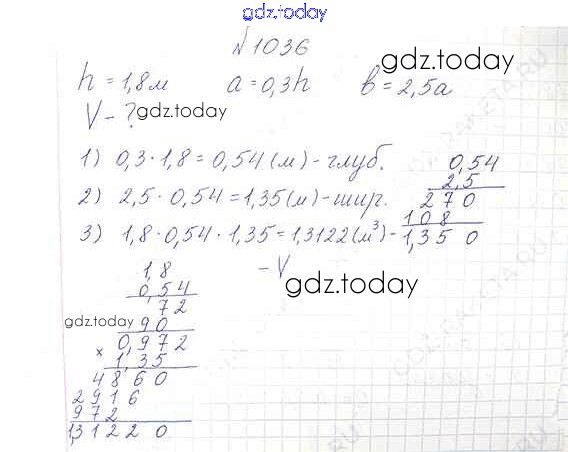 gdz.today
№1036
h = 1,8м a = 0,3h b = 2,5a
gdz.today
V - ?
gdz.today
1) 0,3 · 1,8 = 0,54 (м) - глуб.
2) 2,5 · 0,54 = 1,35 (м) - шир.
3) 1,8 · 0,54 · 1,35 = 1,3122 (м³) -
- V
0,54
2,5
270
108
1,350
gdz.today
1,8
0,54
72
90
0,972
× 1,35
4860
2916
972
1,31220
gdz.today